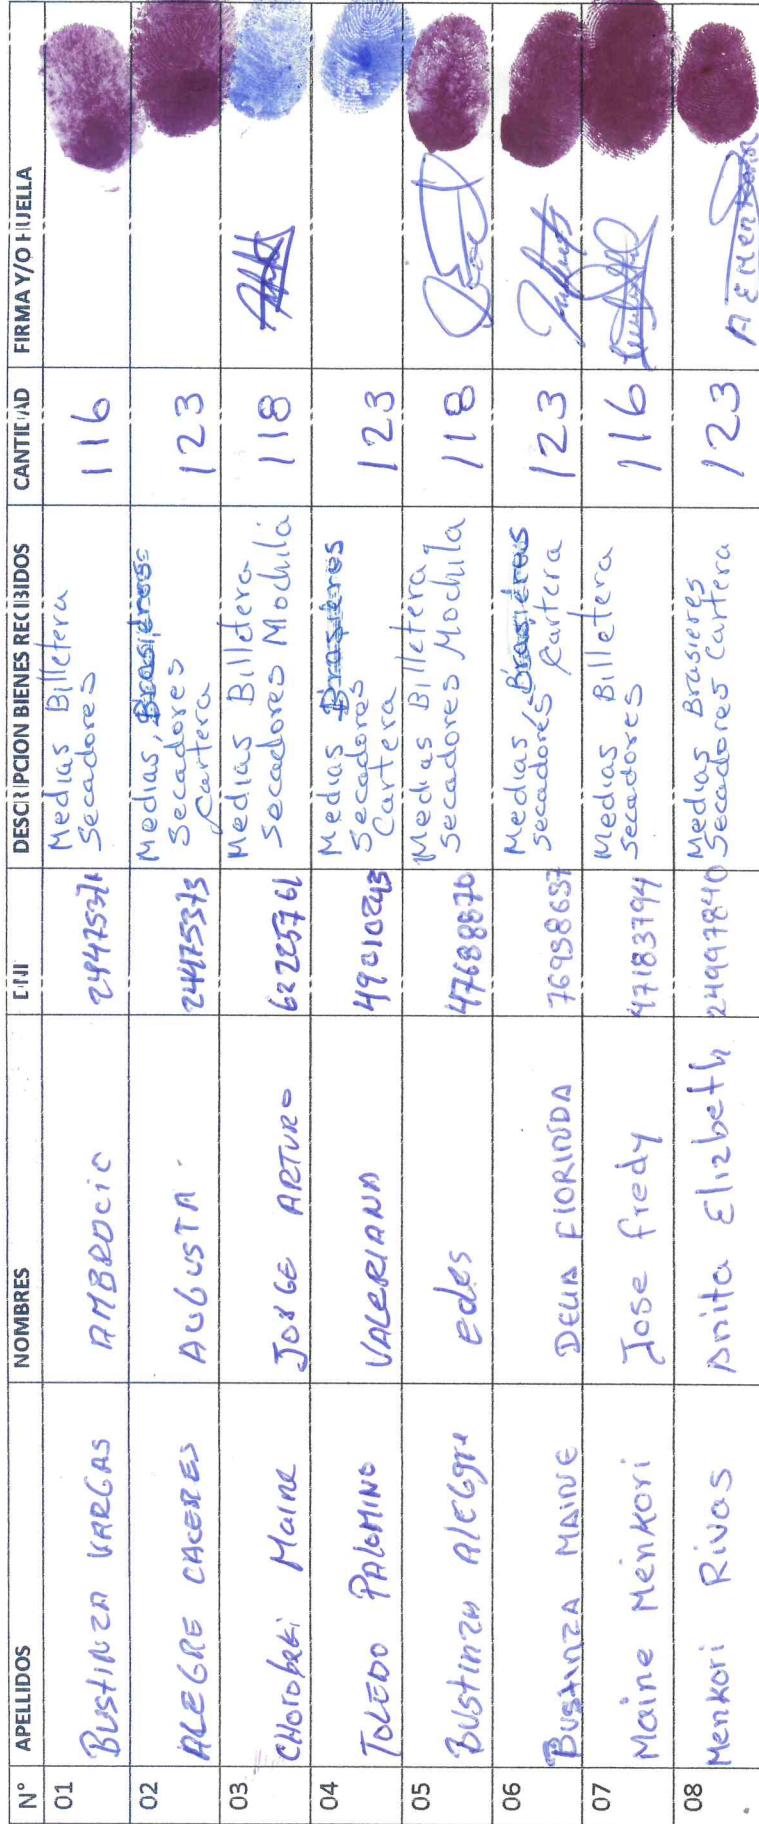 N° APELLIDOS NOMBRES DNI DESCRIPCION BIENES RECIBIDOS CANTIDAD FIRMA Y/O HUELLA
01 BUSTINZA VARGAS AMBROCIO 24475371 Medias Billetera
Secadores 116
02 ALEGRE CACERES AUGUSTA 24475373 Medias, Brasieres
Secadores
Cartera 123
03 CHOROBEKI Maine JORGE ARTURO 62225761 Medias Billetera
Secadores Mochila 118
04 TOLEDO PALOMINO VALERIANA 49010243 Medias Brasieres
Secadores
Cartera 123
05 BUSTINZA ALEGRE edes 47688870 Medias Billetera
Secadores Mochila 118
06 BUSTINZA MAINE DELIA FLORINDA 76958637 Medias, Brasieres
Secadores Cartera 123
07 Maine Menkori Jose fredy 47183794 Medias Billetera
Secadores 116
08 Menkori Rivas Anita Elizbeth 24997840 Medias Brasieres
Secadores Cartera 123